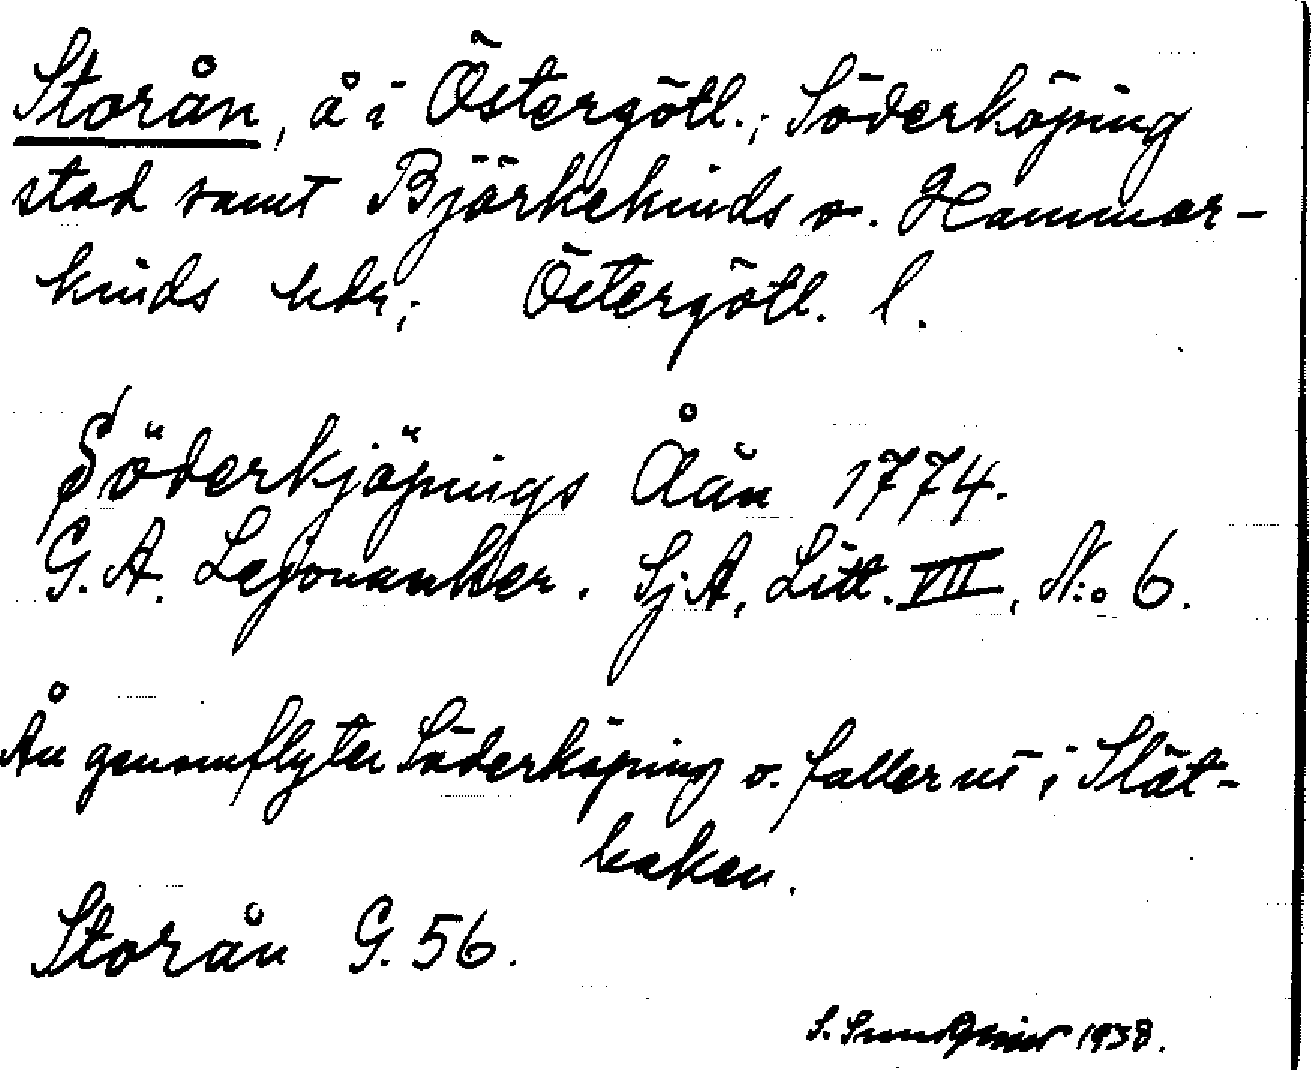 Storån, å i Östergötl.; Söderköping
stad samt Björkekinds o. Hammar-
kinds hdr; Östergötl. l.
Söderkjöpings Åån 1774.
G. A. Lejonanker. SjA, Litt. VII, N:o 6.
Ån genomflyter Söderköping o. faller ut i Slät-
baken.
Storån G. 56.
S. 1938.